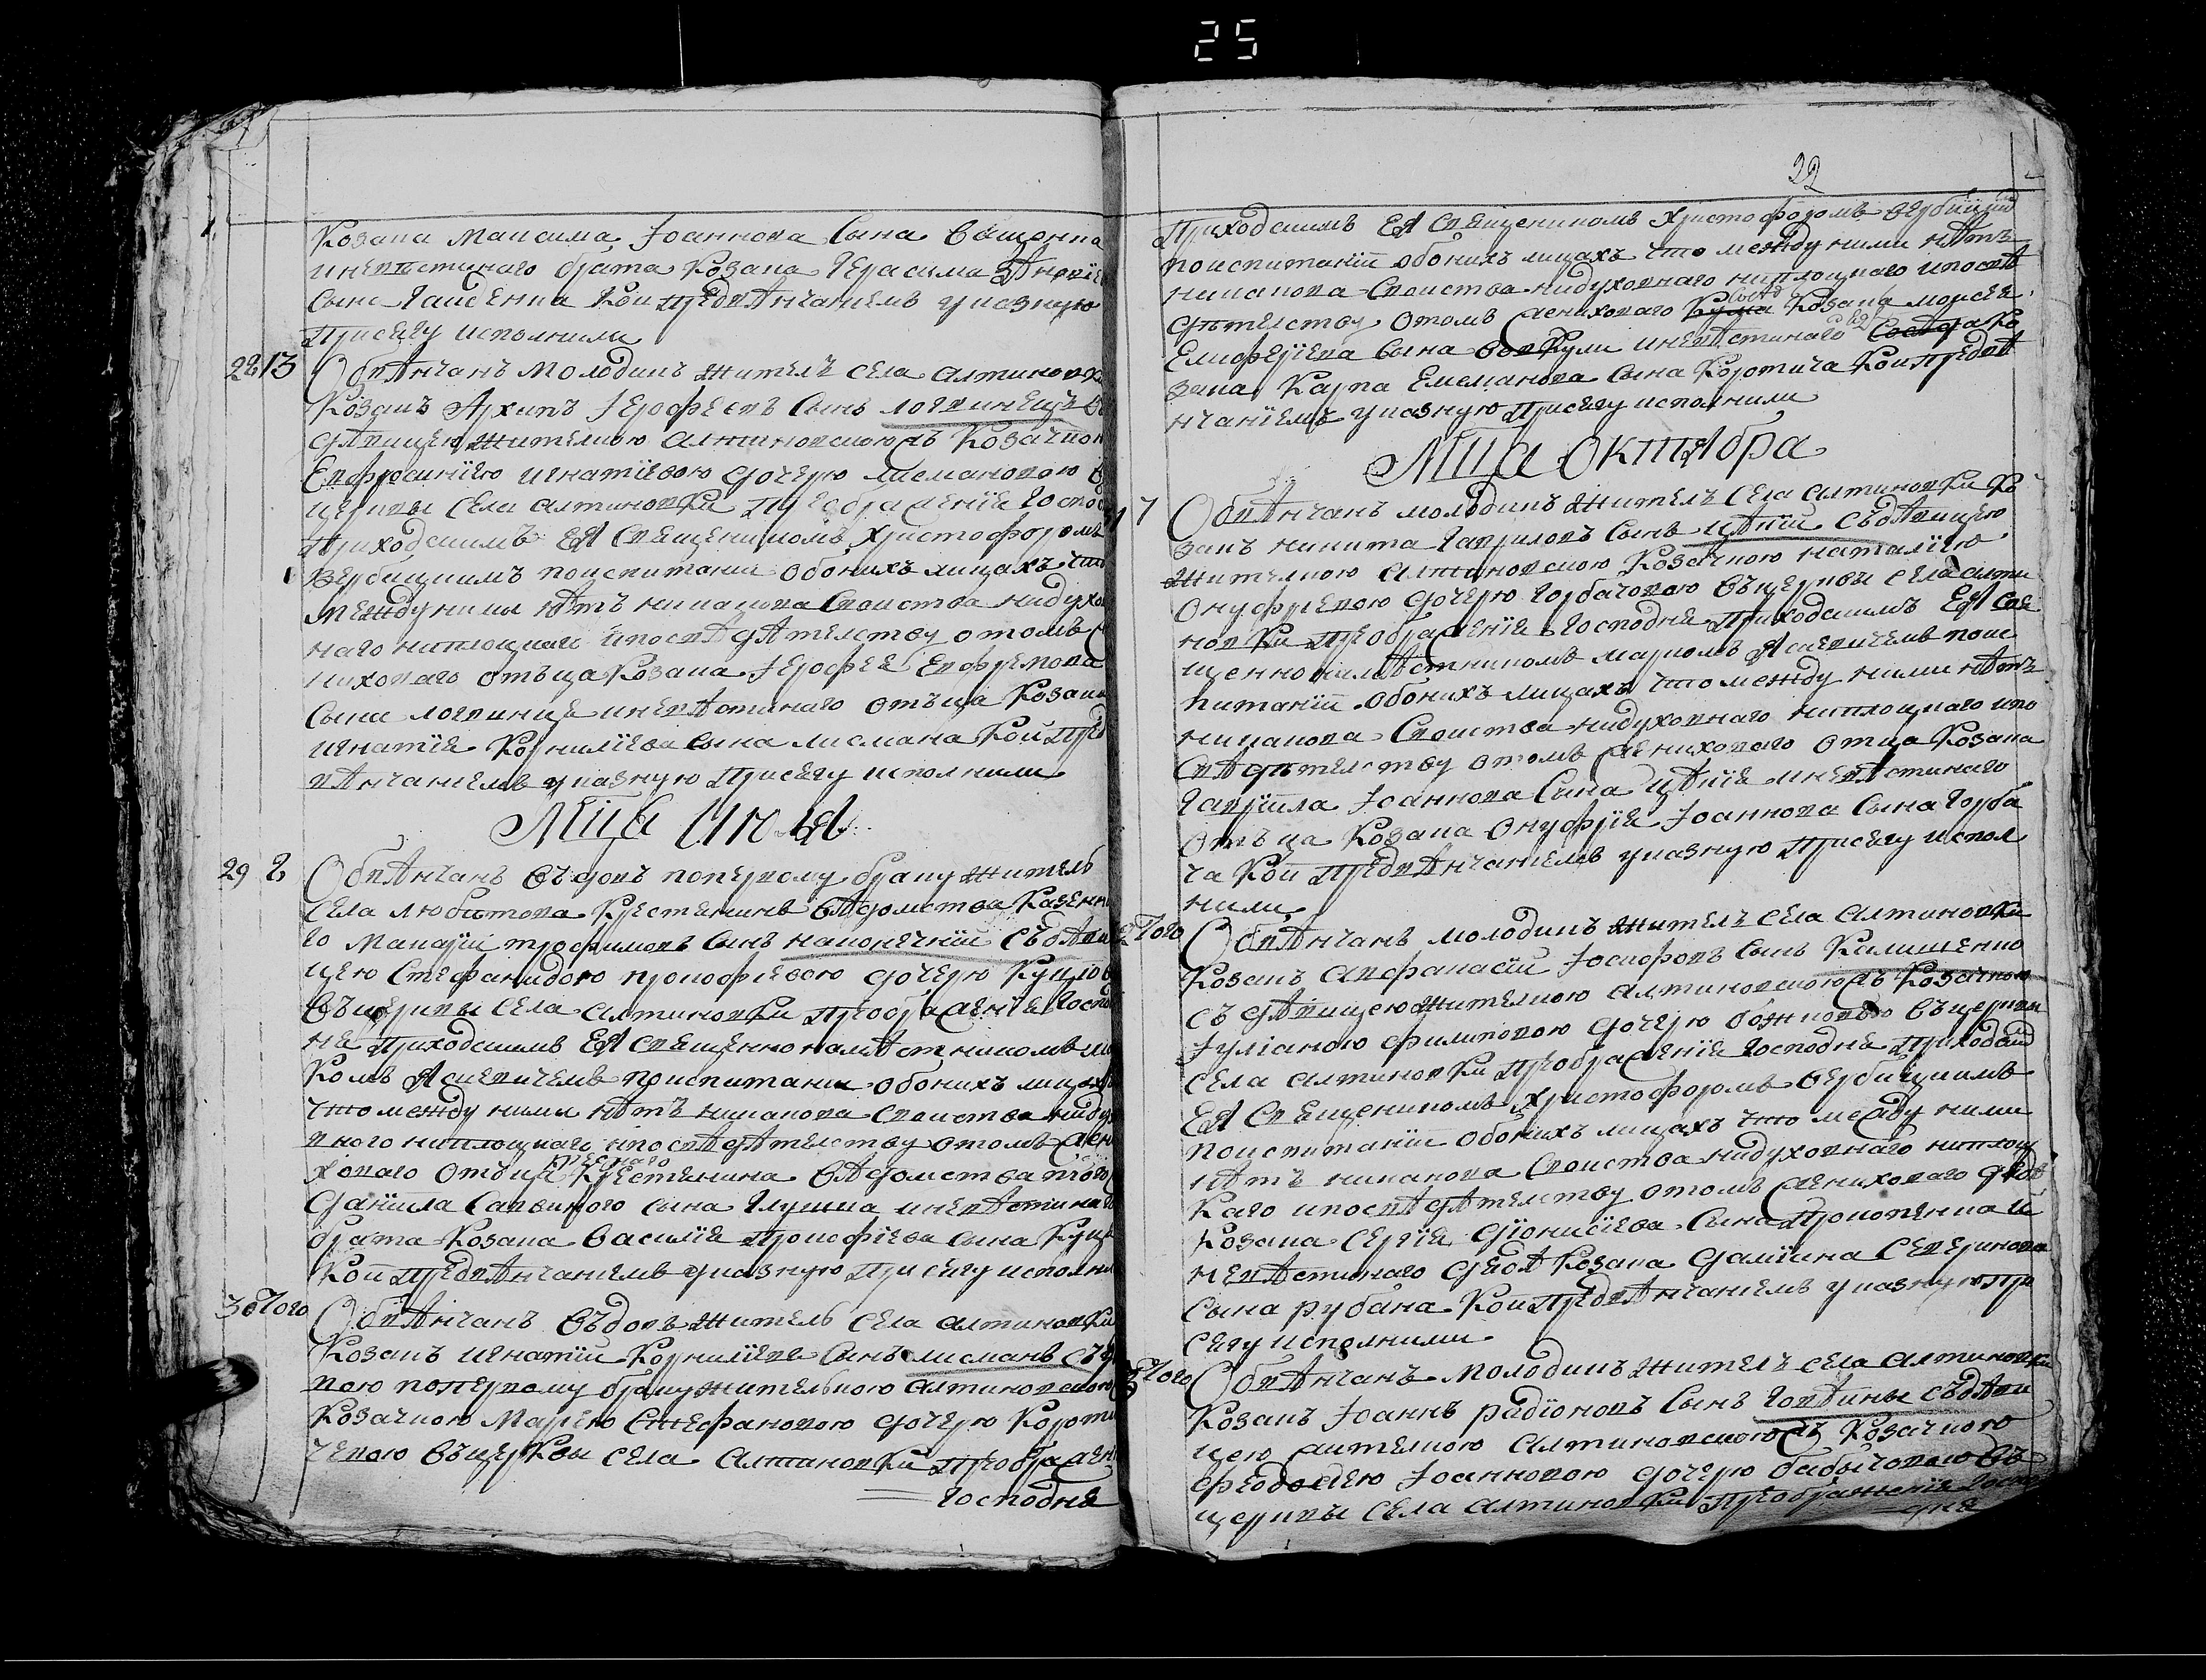 25
22
Козака Максима Іоаннова Сына Ващенка
иневѣстинаго брата Козака Герасима
Сына Гайденка Кои предвѣнчанiемъ указную
Присягу исполнили
28 13 Обвѣнчанъ Молодикъ житель села Алтиновки
Козакъ Архипъ Іерофеевъ Сынъ логвинецъ
дѣвицею жителкою Алтиновскою жъ Козачкою
Евфросинїею игнатїевою дочерю лисмановою
церквы села Алтиновки Преображенїя Господ
Приходскимъ ея Священникомъ Христофоромъ
Вербицкимъ поиспитанiи обоихъ лицахъ что
между ними нѣтъ никакова Своиства нидухов
наго ниплоцкаго ипосвѣдѣтелству отомъ
ниховаго отъца Козака Іерофея Евфремова
Сына логвинца иневѣстинаго отъца Козака
игнатїя Корнилїева Сына лисмана Кои Пред
вѣнчанiемъ указную Присягу исполнили
Мца Июля
29 2 Обвѣнчанъ въдовъ поперъвому браку житель
села любитова Крестянинъ вѣдомства Казенна
го Макарiи трофимовъ Сынъ наконечнiи съдѣви
цею Стефанидою прокофiевою дочерю
въцерквы села Алтиновки Преображенїя Господ
ня Приходскимъ ея Священнонамѣстникомъ
комъ Ясневичемъ поиспитанiи обоихъ лицахъ
что между ними нѣтъ никакова своиства нидухо
вного ниплоцкаго ипосвѣдѣтелству отомъ жен
ховаго отъца Крестянина вѣдомства того
Данiила Саввиного сына Глушка иневѣстинаго
брата Козака Василїя Прокофїева сына
Кои предвѣнчанiемъ указную Присягу исполни
30 того Обвѣнчанъ въдовъ житель села Алтиновки
Козакъ игнатiи Корнилїевъ Сынъ лисманъ съв
вою поперъвому браку жителкою Алтиновскою
Козачкою Марїею Стефановою дочерю Короти
чевою въцерквы села Алтиновки Преображен
Господня
Приходскимъ ея Священникомъ Христофоромъ Вербицкiмъ
поиспитанїи обоихъ лицахъ что между ними нѣтъ
никакова Своиства нидуховнаго ниплоцкаго ипосвѣ
дѣтелству отомъ жениховаго Козака Моисея
Елисеїева Сына иневѣстинаго Ко
зака Карпа Емелианова Сына Коротича Кои предвѣ
нчанїемъ указную Присягу исполнили
Мца Октября
7 Обвѣнчанъ молодикъ житель села Алтиновки Ко
закъ никита Гавриловъ Сынъ цѣпiи съдѣвицею
жителкою Алтиновскою Козачкою наталїею
Онуфрiевою дочерю Горбачовою въцерквы села Алти
новки Преображенїя Господня Приходскимъ ея свя
щеннонамѣстникомъ Маркомъ Ясневичемъ поис
питанїи обоихъ лицахъ что между ними нѣтъ
никакова Своиства нидуховнаго ниплоцкаго ипо
свѣдѣтелству отомъ жениховаго отца Козака
Гаврiила Іоаннова Сына цѣпїя иневѣстинаго
отъца Козака Онуфрїя Іоаннова Сына Горба
ча Кои предвѣнчанiемъ указную Присягу испол
нили
того Обвѣнчанъ молодикъ житель села Алтиновки
Козакъ Афанасїи Іосифовъ Сынъ Калишенко
съ дѣвицею жителкою Алтиновскою жъ Козачкою
Іулiаною филиповою дочерю въцерквы
села Алтиновки Преображенїя Господня Приходский
ея Священникомъ Христофоромъ Вербицкимъ
поиспитанїи обоихъ лицахъ что между ними
нѣтъ никакова Своиства нидуховнаго ниплоц
каго ипосвѣдѣтелству отомъ жениховаго дядѣ
Козака Сергїя Дїонисїева Сына Прокопенка и
невѣстинаго Козака Данїила Северинова
Сына рубана Кои предвѣнчанiемъ указную при
сягу исполнили
того Обвѣнчанъ Молодикъ житель села Алтиновки
Козакъ Іоаннъ радiоновъ Сынъ съдѣви
цею жителкою Алтиновскою жъ Козачкою
феодосiею Іоанновою дочерю въ
церквы села Алтиновки Преображенїя Госпо
дня